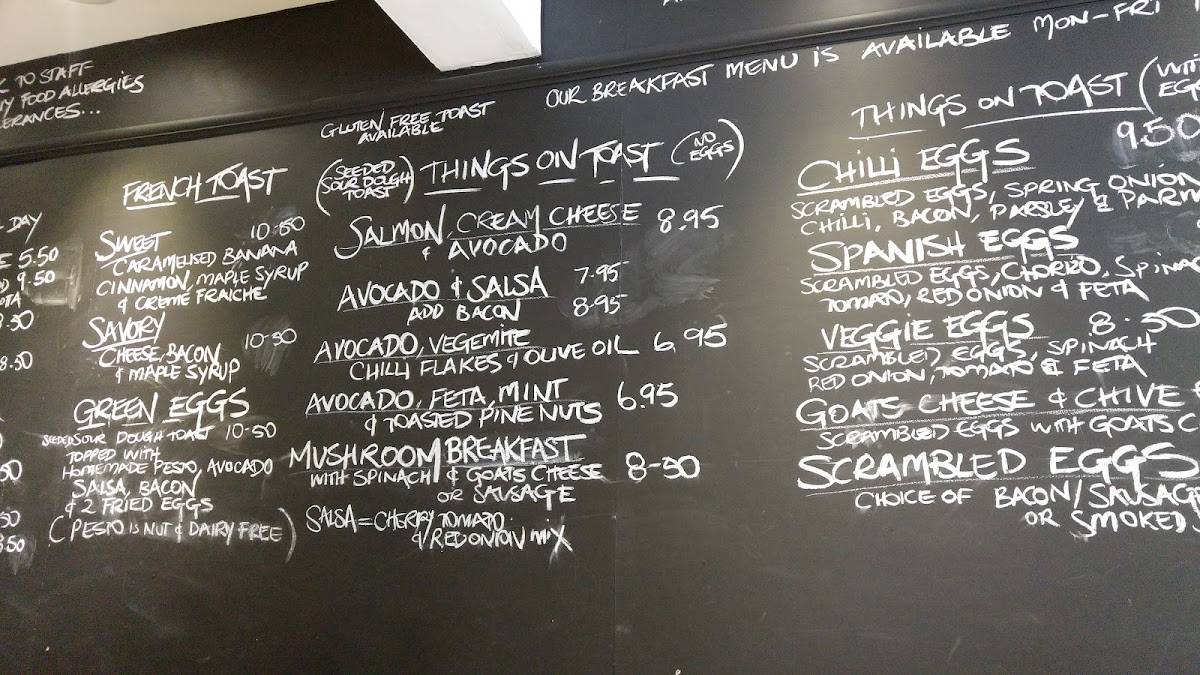 TO STAFF
FOOD ALLERGIES
OUR BREAKFAST MENU IS AVAILABLE MON-FRI
DAY
5.50
9.50
FRENCH TOAST
SWEET 10-50
CARAMELISED BANANA
CINNAMON, MAPLE SYRUP
& CREME FRAICHE
SAVORY 10-50
CHEESE, BACON
& MAPLE SYRUP
GREEN EGGS
SEEDED SOUR DOUGH TOAST 10-50
TOPPED WITH
HOMEMADE PESTO, AVOCADO
SALSA, BACON
& 2 FRIED EGGS
(PESTO IS NUT & DAIRY FREE)
GLUTEN FREE TOAST
AVAILABLE
(SEEDED SOUR DOUGH TOAST) THINGS ON TOAST (NO EGGS)
SALMON, CREAM CHEESE 8.95
& AVOCADO
AVOCADO & SALSA 7.95
ADD BACON 8.95
AVOCADO, VEGEMITE
CHILLI FLAKES & OLIVE OIL 6.95
AVOCADO, FETA, MINT 6.95
& TOASTED PINE NUTS
MUSHROOM BREAKFAST
WITH SPINACH & GOATS CHEESE 8-50
OR SAUSAGE
SALSA = CHERRY TOMATO
& RED ONION MIX
THINGS ON TOAST (WITH
9.50
CHILLI EGGS
SCRAMBLED EGGS, SPRING ONION
CHILLI, BACON, PARSLEY &
SPANISH EGGS
SCRAMBLED EGGS, CHORIZO,
TOMATO, RED ONION & FETA
VEGGIE EGGS 8.50
SCRAMBLED EGGS, SPINACH
RED ONION, TOMATO & FETA
GOATS CHEESE & CHIVE
SCRAMBLED EGGS WITH GOATS
SCRAMBLED EGGS
CHOICE OF BACON/SAUSAGE
OR SMOKED